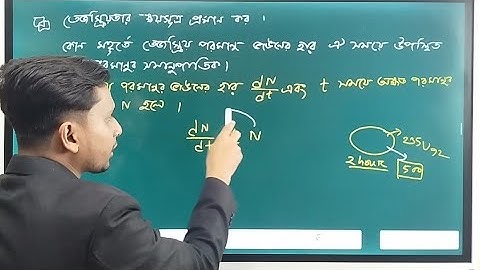 তেজস্ক্রিয়তার ক্ষয়সূত্র প্রমাণ কর ।
কোন মুহূর্তে তেজস্ক্রিয় পরমাণু ভাঙনের হার ঐ সময়ে উপস্থিত
পরমাণুর সমানুপাতিক।
পরমাণুর ভাঙনের হার dN/dt এবং t সময়ে অক্ষত পরমাণুর
N হলে ।
dN/dt N
235 U 92
2 hour 500